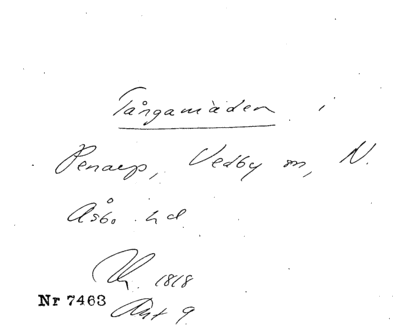 Tångamaden i
Penarp, Vedby sn, N.
Åsbo hd.
1818
Nr 7463
Akt 9